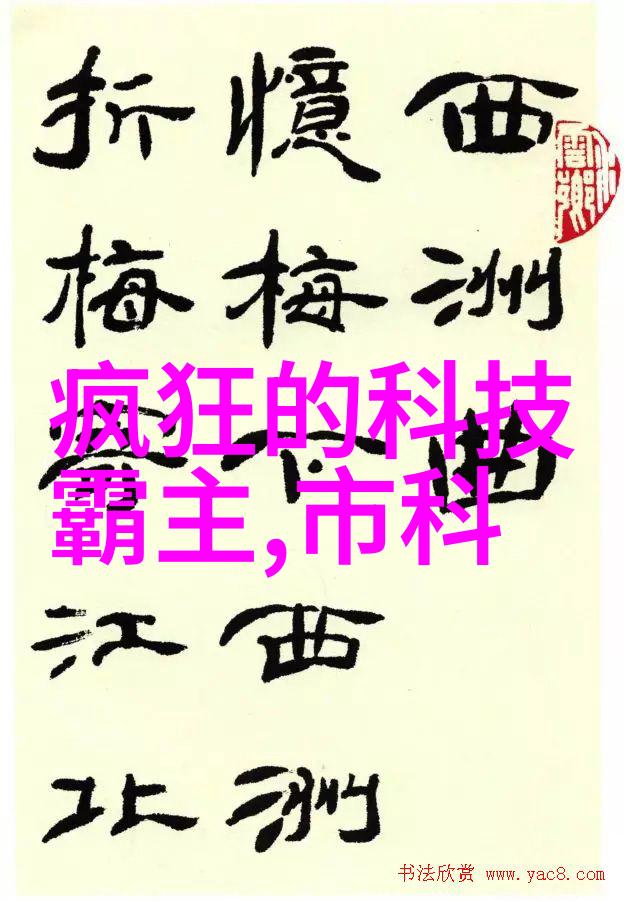 西洲曲
憶梅下西洲
折梅江北
疯狂的科技
霸主,市科
书法欣赏 www.yac8.com